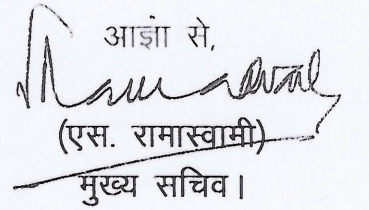 आज्ञा से,
(एस. रामास्वामी)
मुख्य सचिव।